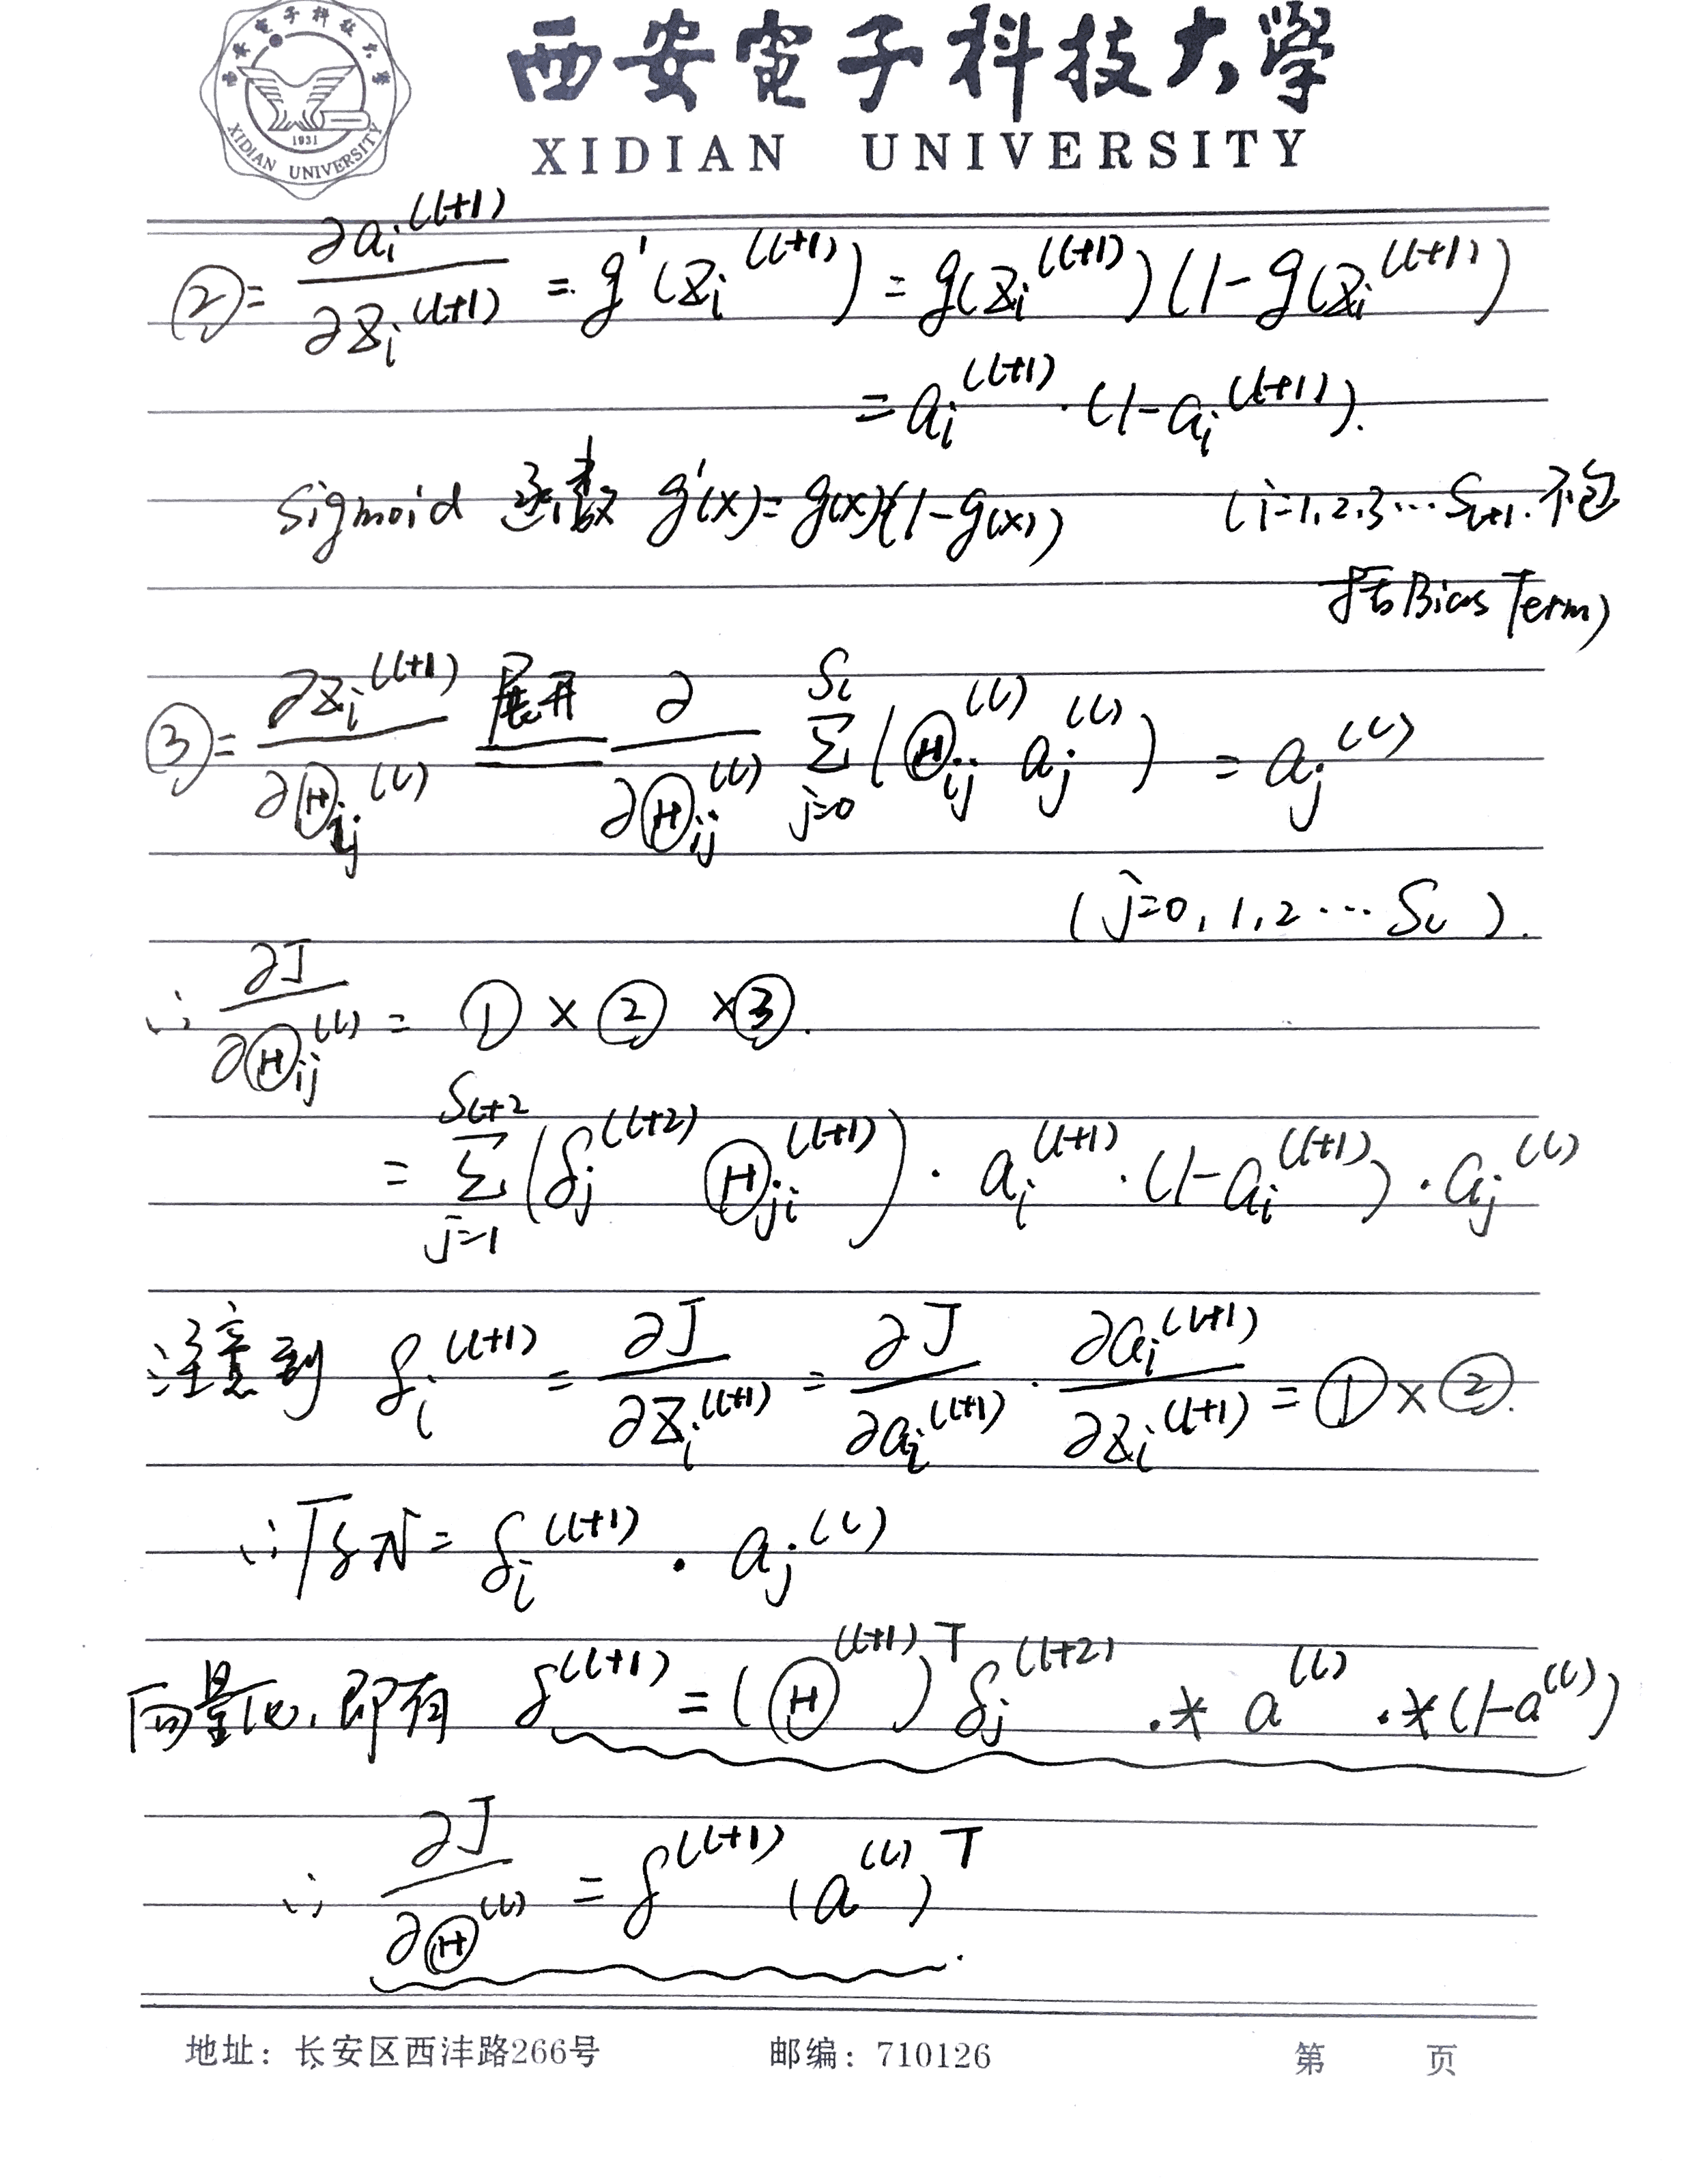 西安電子科技大學
XIDIAN UNIVERSITY
西安电子科技大学
1931
XIDIAN UNIVERSITY
② = ∂a_i^(l+1) / ∂z_i^(l+1) = g'(z_i^(l+1)) = g(z_i^(l+1)) (1 - g(z_i^(l+1))
= a_i^(l+1) · (1 - a_i^(l+1)).
sigmoid 函数 g'(x) = g(x)(1 - g(x)) (i=1,2,3…S_{l+1}.不包
括Bias Term)
③ = ∂z_i^(l+1) / ∂Θ_ij^(l) 展开 = ∂ / ∂Θ_ij^(l) Σ_{j=0}^{S_l} (Θ_ij^(l) a_j^(l)) = a_j^(l)
(j=0,1,2…S_l).
∴ ∂J / ∂Θ_ij^(l) = ① × ② × ③.
= Σ_{j=1}^{S_{l+2}} (δ_j^(l+2) Θ_ji^(l+1)) · a_i^(l+1) · (1 - a_i^(l+1)) · a_j^(l)
注意到 δ_i^(l+1) = ∂J / ∂z_i^(l+1) = ∂J / ∂a_i^(l+1) · ∂a_i^(l+1) / ∂z_i^(l+1) = ① × ②.
∴ 原式 = δ_i^(l+1) · a_j^(l)
向量化,即有 δ^(l+1) = (Θ^(l+1))^T δ_j^(l+2) .* a^(l) .* (1 - a^(l))
∴ ∂J / ∂Θ^(l) = δ^(l+1) (a^(l))^T.
地址：长安区西沣路266号 邮编：710126 第 页